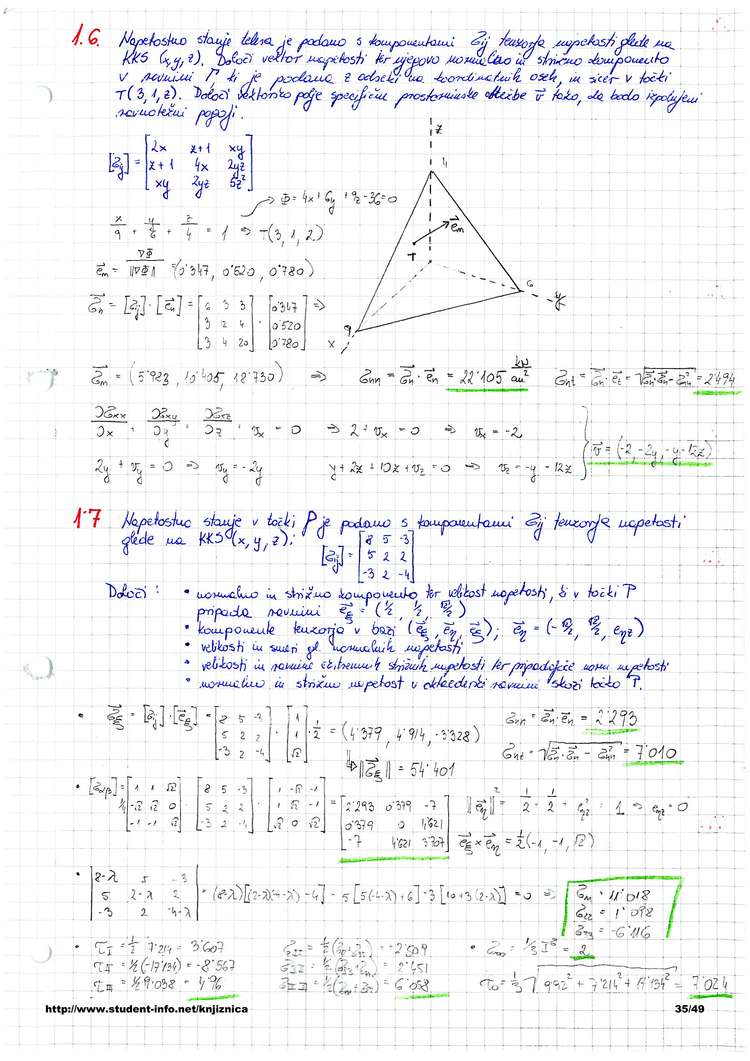 1.6. Napetostno stanje telesa je podano s komponentami σij tenzorja napetosti glede na
KKS (x, y, z). Določi vektor napetosti ter njegovo normalno in strižno komponento
v ravnini P, ki je podana z odseki na koordinatnih oseh, in sicer v točki
T(3,1,z). Določi vektorsko polje specifične prostorninske obtežbe v⃗ tako, da bodo izpolnjeni
ravnotežni pogoji.
[σij] = [2x z+1 xy
z+1 4x 2yz
xy 2yz 5z²]
Φ = 4x + 6y + 9z - 36 = 0
x/9 + y/6 + z/4 = 1 ⇒ T(3,1,2)
e⃗n = ∇Φ/||∇Φ|| = (0'347, 0'520, 0'780)
σ⃗n = [σij]·[e⃗n] = [6 3 3
3 12 4
3 4 20] · [0'347
0'520
0'780] ⇒
z
4
e⃗n
T
6
y
9
x
σ⃗n = (5'983, 10'405, 18'730) ⇒ σnn = σ⃗n · e⃗n = 22'105 kN/cm² σnt = σ⃗n · e⃗t = √(σ⃗n·σ⃗n - σ²nn) = 2'494
∂σxx/∂x + ∂σxy/∂y + ∂σxz/∂z + vx = 0 ⇒ 2 + vx = 0 ⇒ vx = -2
2y + vy = 0 ⇒ vy = -2y y + 2z + 10z + vz = 0 ⇒ vz = -y - 12z
v⃗ = (-2, -2y, -y-12z)
1.7 Napetostno stanje v točki P je podano s komponentami σij tenzorja napetosti
glede na KKS (x, y, z):
[σij] = [8 5 -3
5 2 2
-3 2 -4]
Določi: • normalno in strižno komponento ter velikost napetosti, ki v točki P
pripada ravnini e⃗ξ = (1/2, 1/2, √2/2)
• komponente tenzorja v bazi (e⃗ξ, e⃗η, e⃗ζ); e⃗η = (-√2/2, √2/2, eηz)
• velikosti in smeri gl. normalnih napetosti
• velikosti in ravnine ekstremnih strižnih napetosti ter pripadajoče norm. napetosti
• normalno in strižno napetost v oktaedrski ravnini skozi točko P.
• σ⃗ξ = [σij]·[e⃗ξ] = [8 5 -3
5 2 2
-3 2 -4] · [1
1
√2] · 1/2 = (4'379, 4'914, -3'328)
||σ⃗ξ|| = 54'401
σnn = σ⃗n · e⃗n = 2'293
σnt = √(σ⃗n·σ⃗n - σ²nn) = 7'010
• [σαβ] = 1/4 [1 1 √2
-√2 √2 0
-1 -1 √2] · [8 5 -3
5 2 2
-3 2 -4] · [1 -√2 -1
1 √2 -1
√2 0 √2] = [2'293 0'379 -7
0'379 0 4'621
-7 4'621 3'707]
||e⃗η||² = 1/2 + 1/2 + e²ηz = 1 ⇒ eηz = 0
e⃗ξ × e⃗η = 1/2(-1, -1, √2)
• |8-λ 5 -3
5 2-λ 2
-3 2 -4-λ| = (8-λ)[(2-λ)(-4-λ) - 4] - 5[5(-4-λ) + 6] - 3[10 + 3(2-λ)] = 0 ⇒
σ11 = 11'018
σ22 = 1'098
σ33 = -6'116
• τI = 1/2 7'214 = 3'607
τII = 1/2(-17'134) = -8'567
τIII = 1/2 9'038 = 4'96
= -2'509
= 2'451
= 6'058
• = 1/3 = 2
τo = 1/3 √(9'92² + 7'214² + 17'134²) = 7'024
http://www.student-info.net/knjiznica
35/49